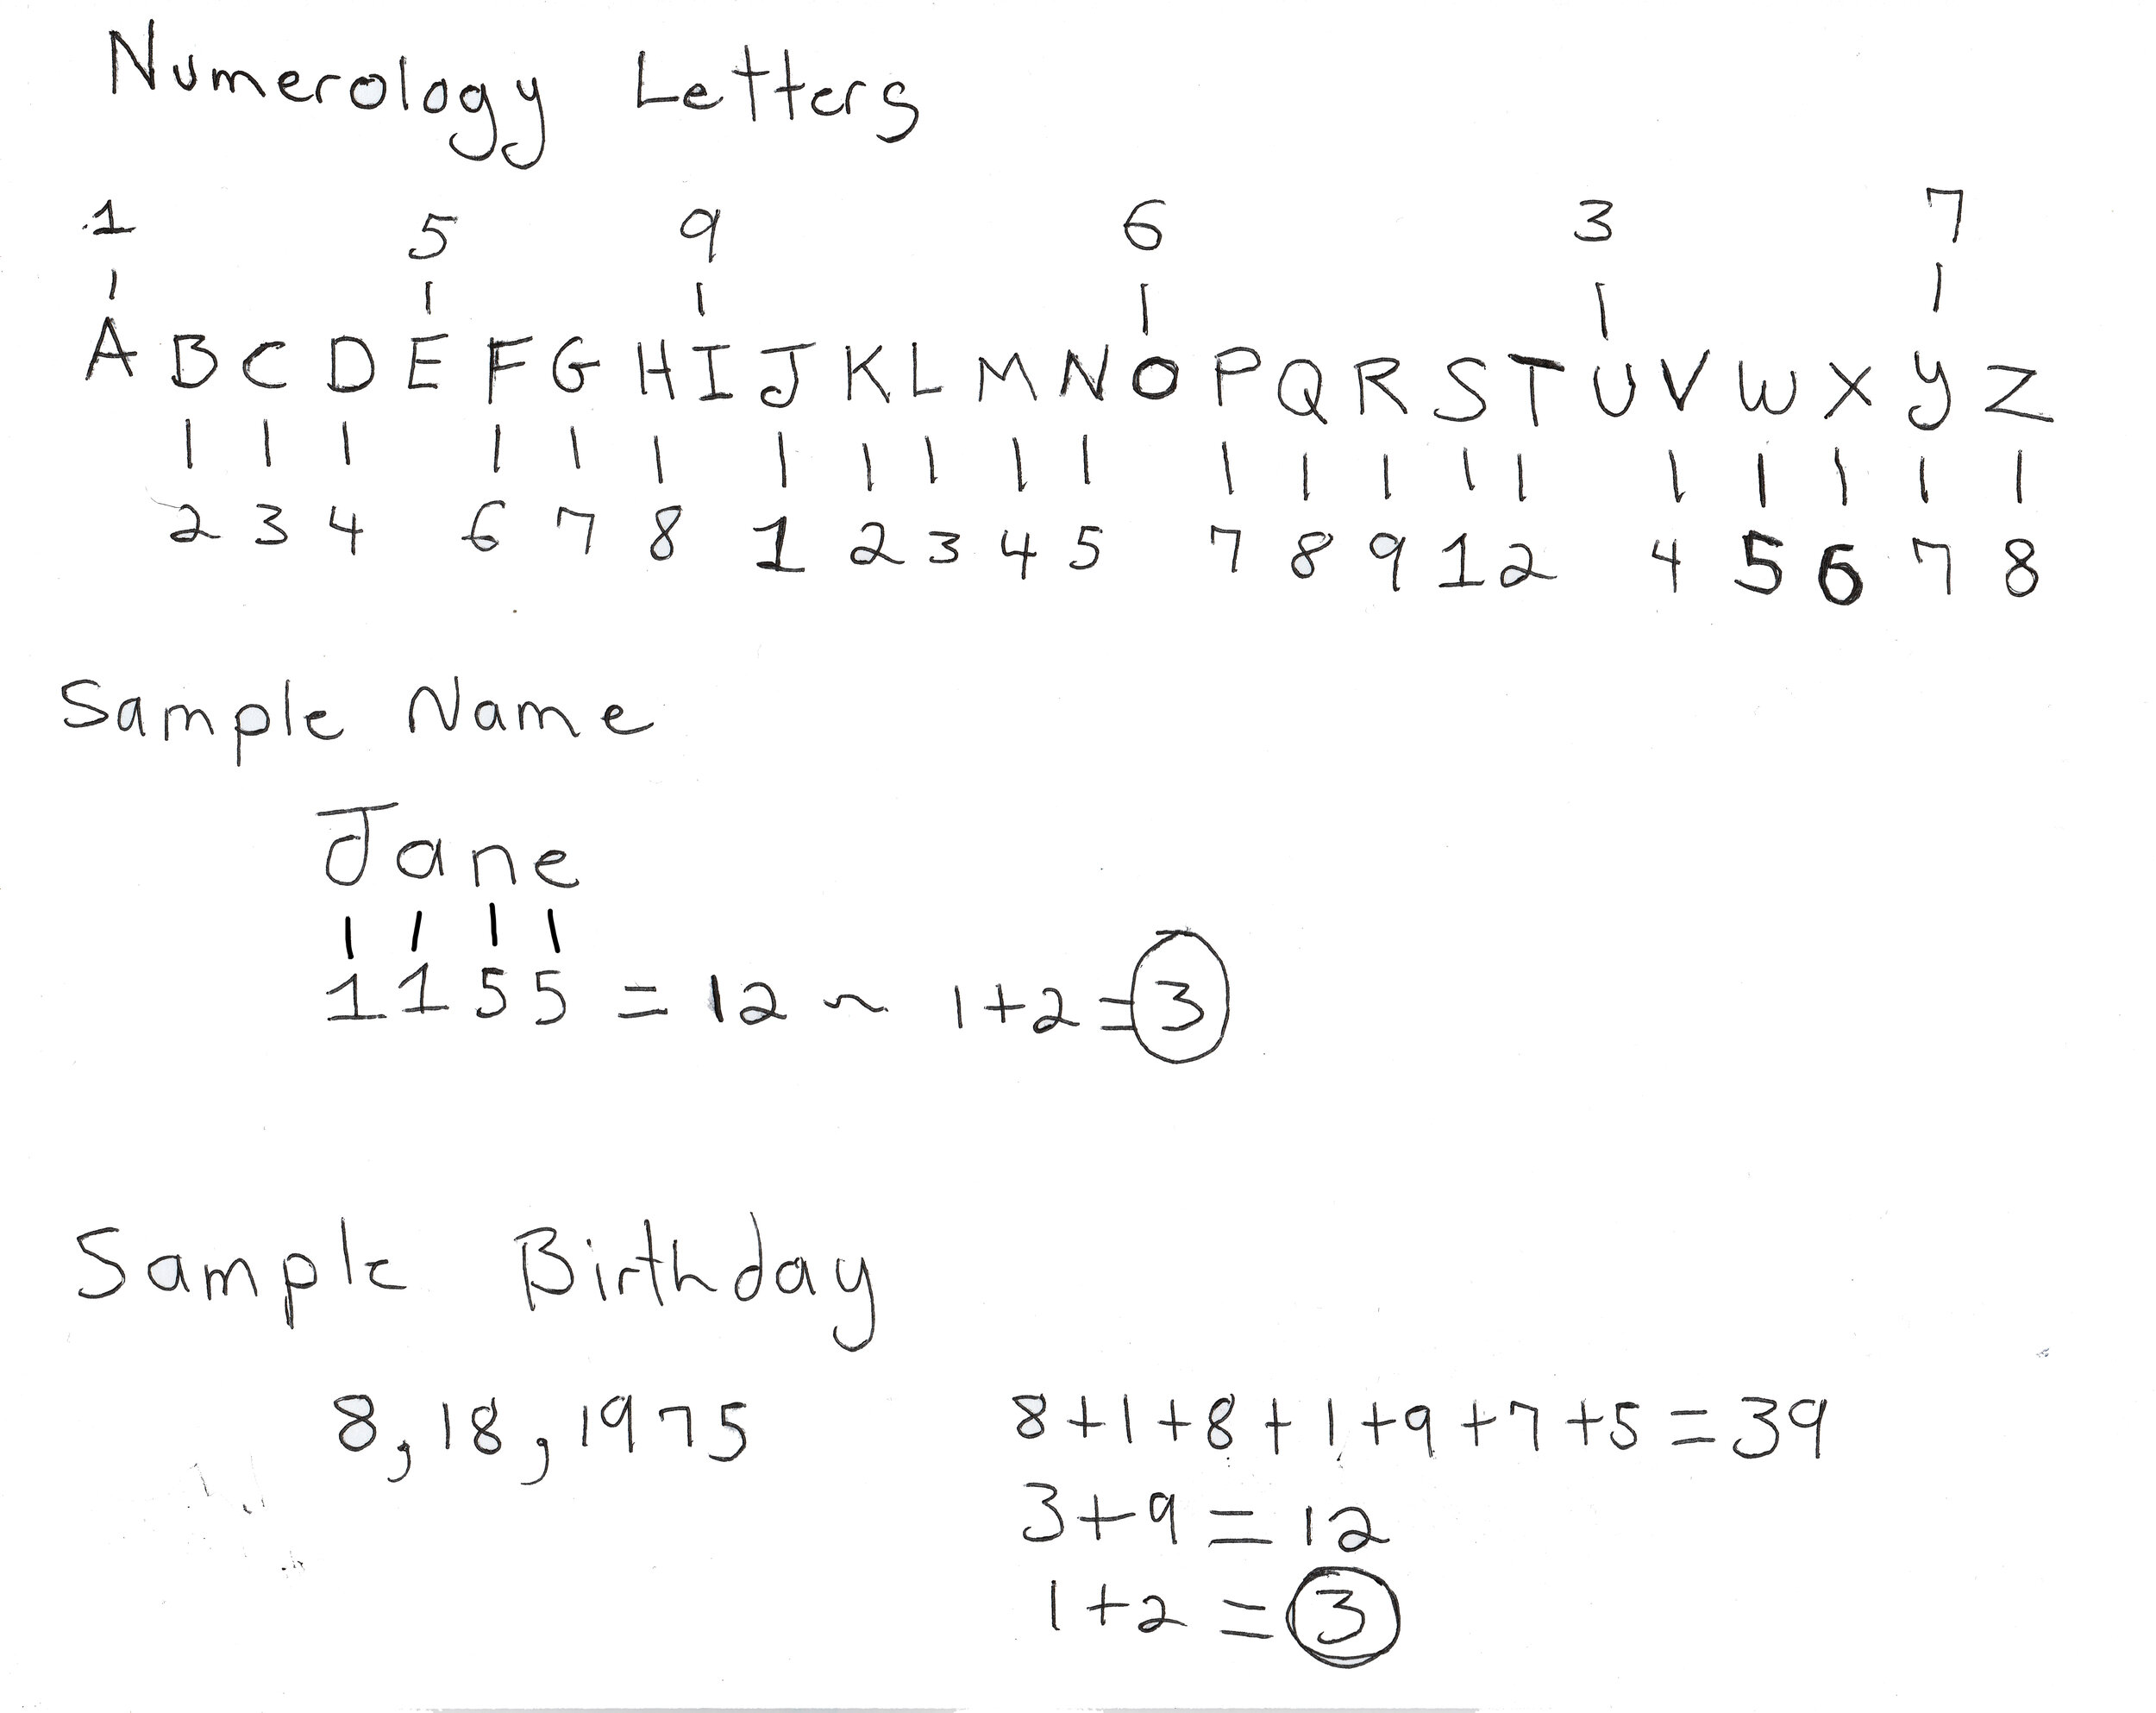 Numerology Letters
1 5 9 6 3 7
A B C D E F G H I J K L M N O P Q R S T U V W X Y Z
2 3 4 6 7 8 1 2 3 4 5 7 8 9 1 2 4 5 6 7 8
Sample Name
Jane
1 1 5 5 = 12 ~ 1+2=3
Sample Birthday
8, 18, 1975 8+1+8+1+9+7+5=39
3+9=12
1+2=3